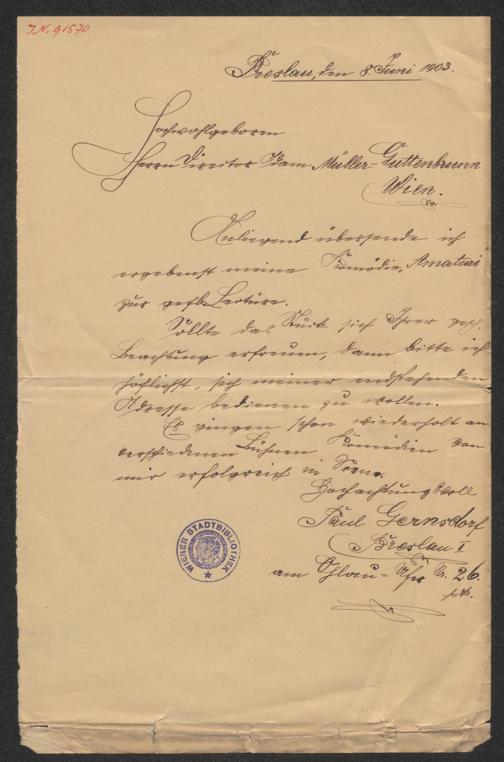 J.N. 91570
Breslau, den 8. Juni 1903.
Hochwohlgeboren
Herrn Director Adam Müller-Guttenbrunn
Wien.
Anliegend übersende ich
ergebenst meine Komödie „Amaturi“
zur gefl. Lectüre.
Sollte das Stück sich Ihrer gesch.
Beachtung erfreuen, dann bitte ich
höflichst, sich meiner nachstehenden
Adresse bedienen zu wollen.
Es gingen schon wiederholt an
verschiedenen Bühnen Komödien von
mir erfolgreich in Scene.
Hochachtungsvoll
Paul Gernsdorf
Breslau I
am Ohlau-Ufer Nr. 26.
WIENER STADTBIBLIOTHEK